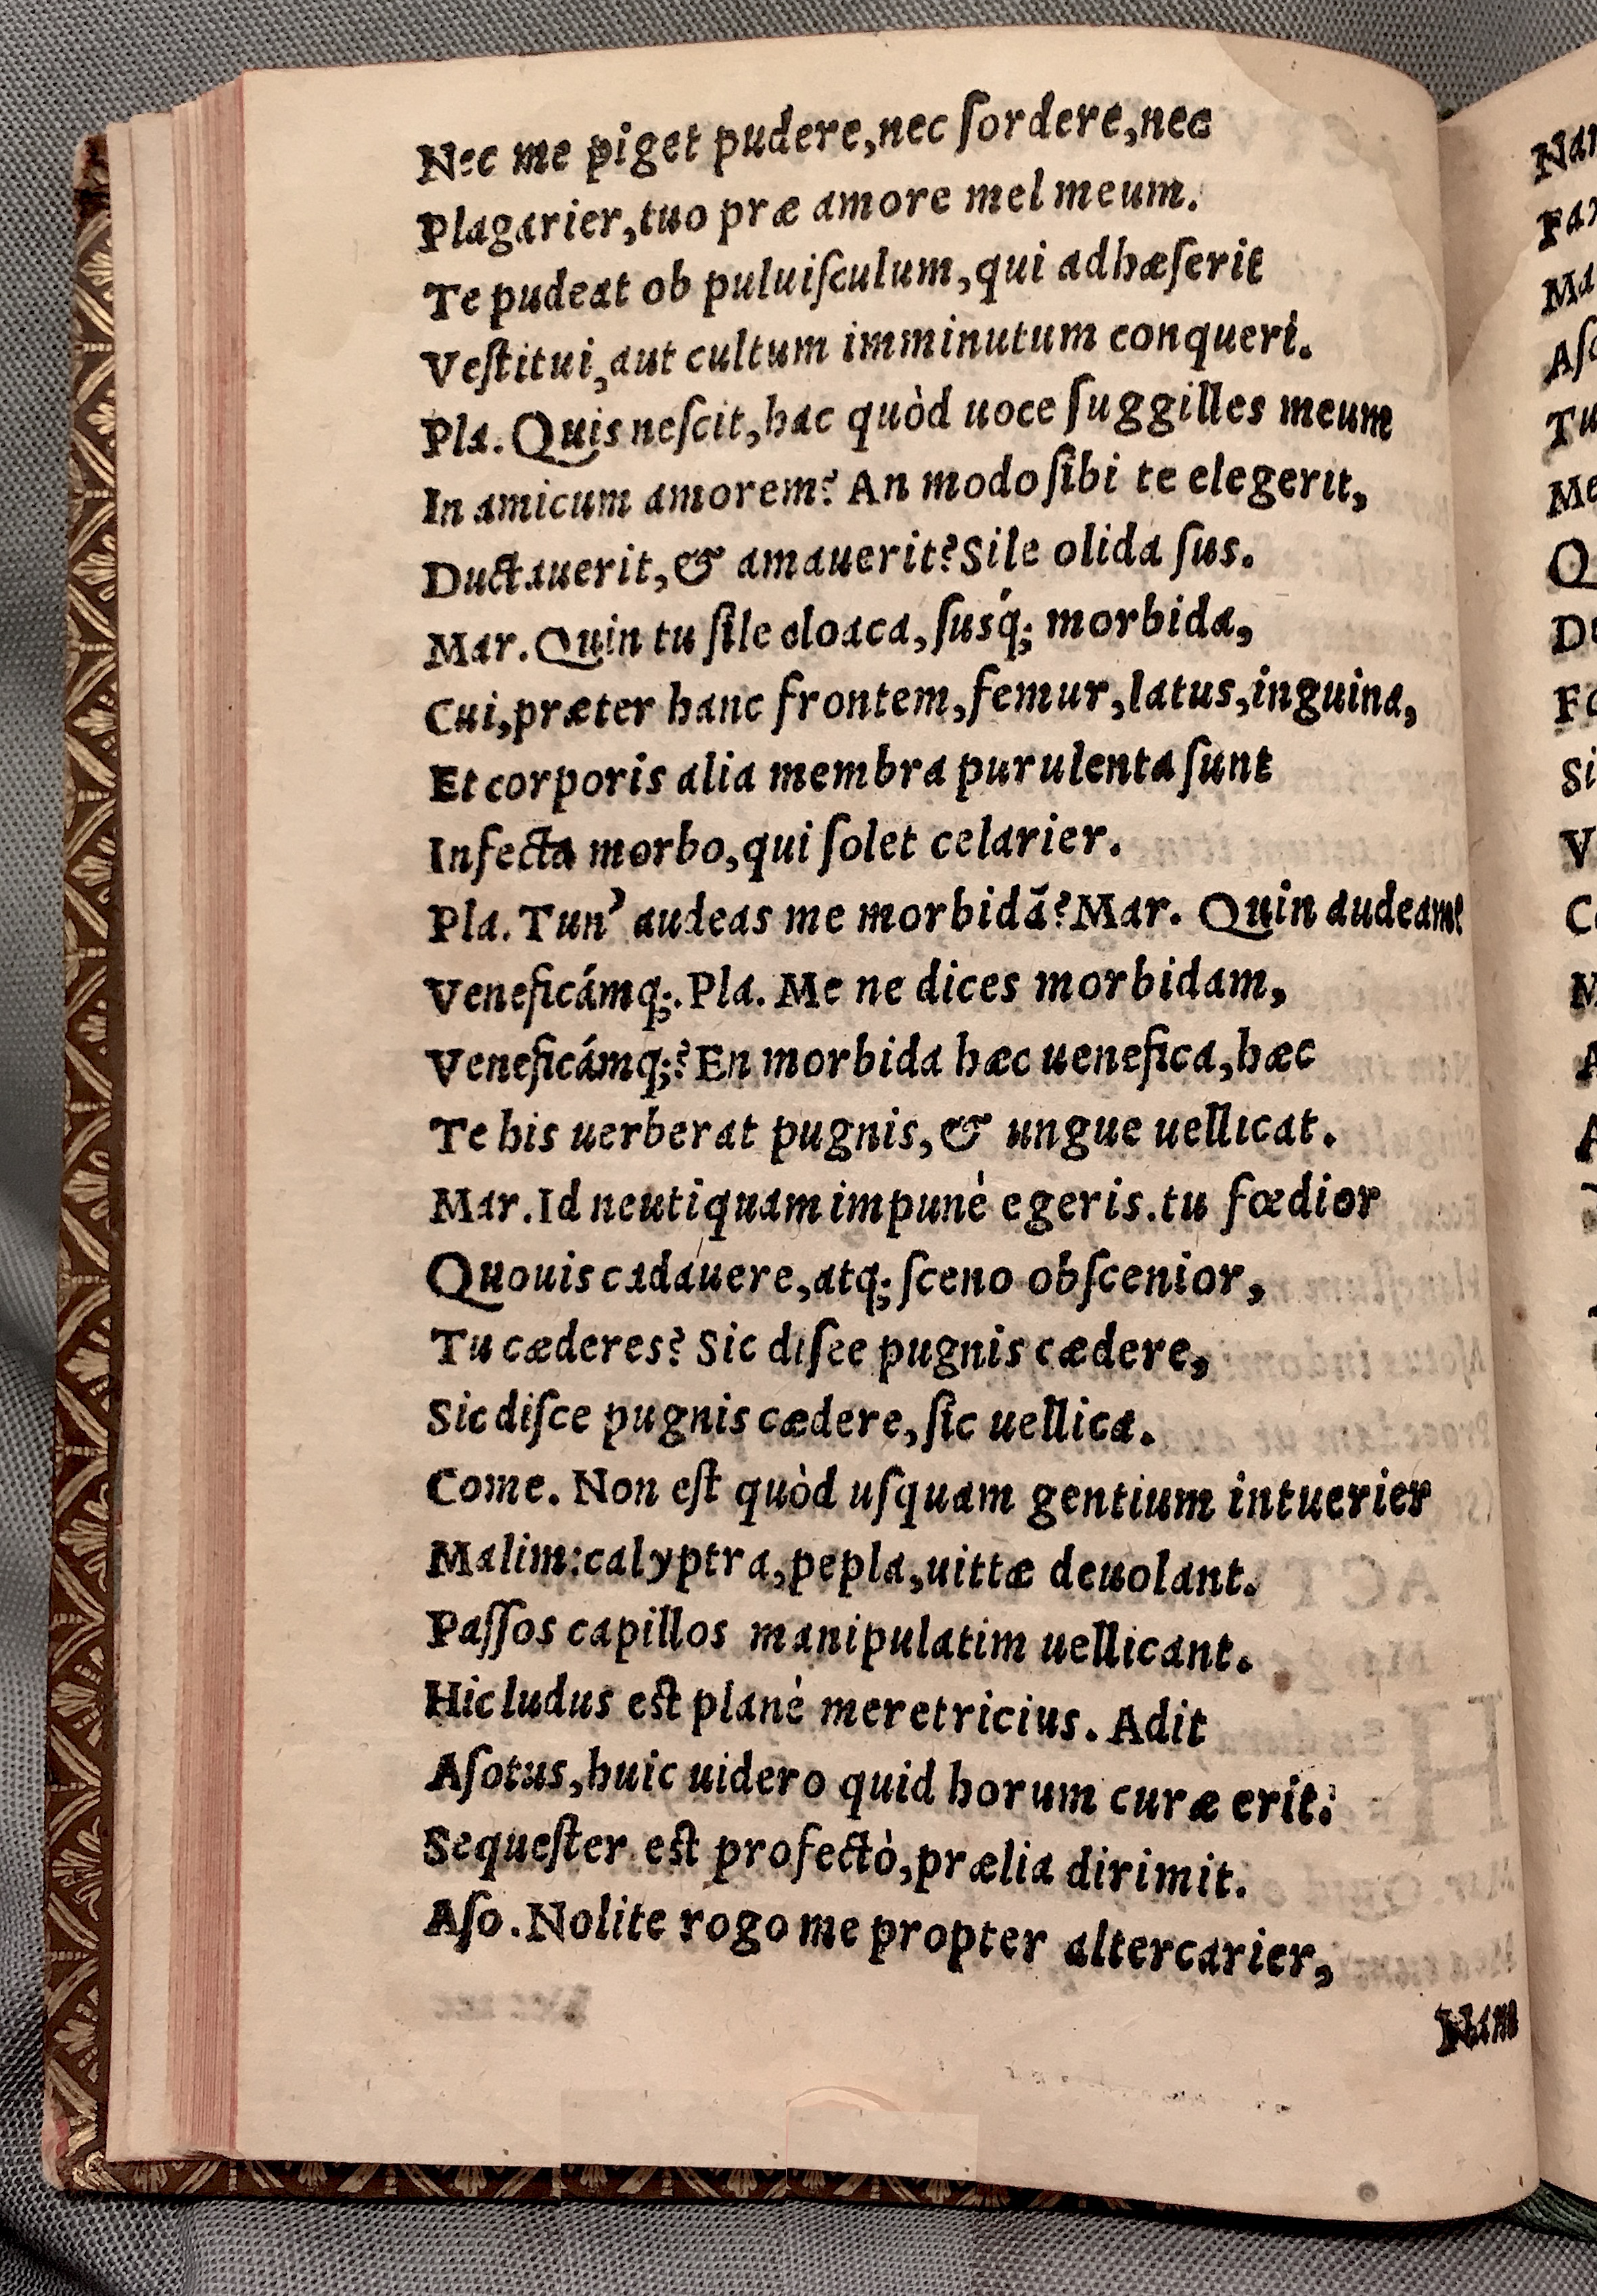 Nec me piget pudere,nec ſordere,nec
Plagarier,tuo præ amore mel meum.
Te pudeat ob puluiſculum,qui adhæſerit
Veſtitui,aut cultum imminutum conqueri.
Pla. Quis neſcit,hac quòd uoce ſuggilles meum
In amicum amorem? An modo ſibi te elegerit,
Ductauerit,& amauerit? Sile olida ſus.
Mar. Quin tu ſile cloaca,ſusq́; morbida,
Cui,præter hanc frontem,femur,latus,inguina,
Et corporis alia membra purulenta ſunt
Infecta morbo,qui ſolet celarier.
Pla. Tun' audeas me morbidã? Mar. Quin audeam?
Veneficámq;. Pla. Me ne dices morbidam,
Veneficámq;? En morbida hæc uenefica,hæc
Te his uerberat pugnis,& ungue uellicat.
Mar. Id neutiquam impunè egeris. tu fœdior
Quouis cadauere,atq; ſceno obſcenior,
Tu cæderes? Sic diſce pugnis cædere,
Sic diſce pugnis cædere,ſic uellica.
Come. Non eſt quòd uſquam gentium intuerier
Malim:calyptra,pepla,uittæ deuolant.
Paſſos capillos manipulatim uellicant.
Hic ludus eſt planè meretricius. Adit
Aſotus,huic uidero quid horum curæ erit.
Sequeſter eſt profectò,prælia dirimit.
Aſo. Nolite rogo me propter altercarier,
Nam
Nan
Far
Ma
Aſo
Tu
Me
Q
Du
Fa
Si
V
Co
M
A
A